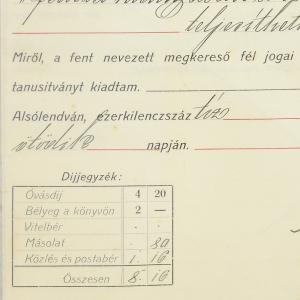 teljesíthet
Miről, a fent nevezett megkereső fél jogai
tanusitványt kiadtam.
Alsólendván, ezerkilenczszáz tizen
ötödik napján.
Díjjegyzék:
Óvásdíj 4 20
Bélyeg a könyvön 2 —
Vitelbér . .
Másolat . 80
Közlés és postabér 1. 16
Összesen 8. 16